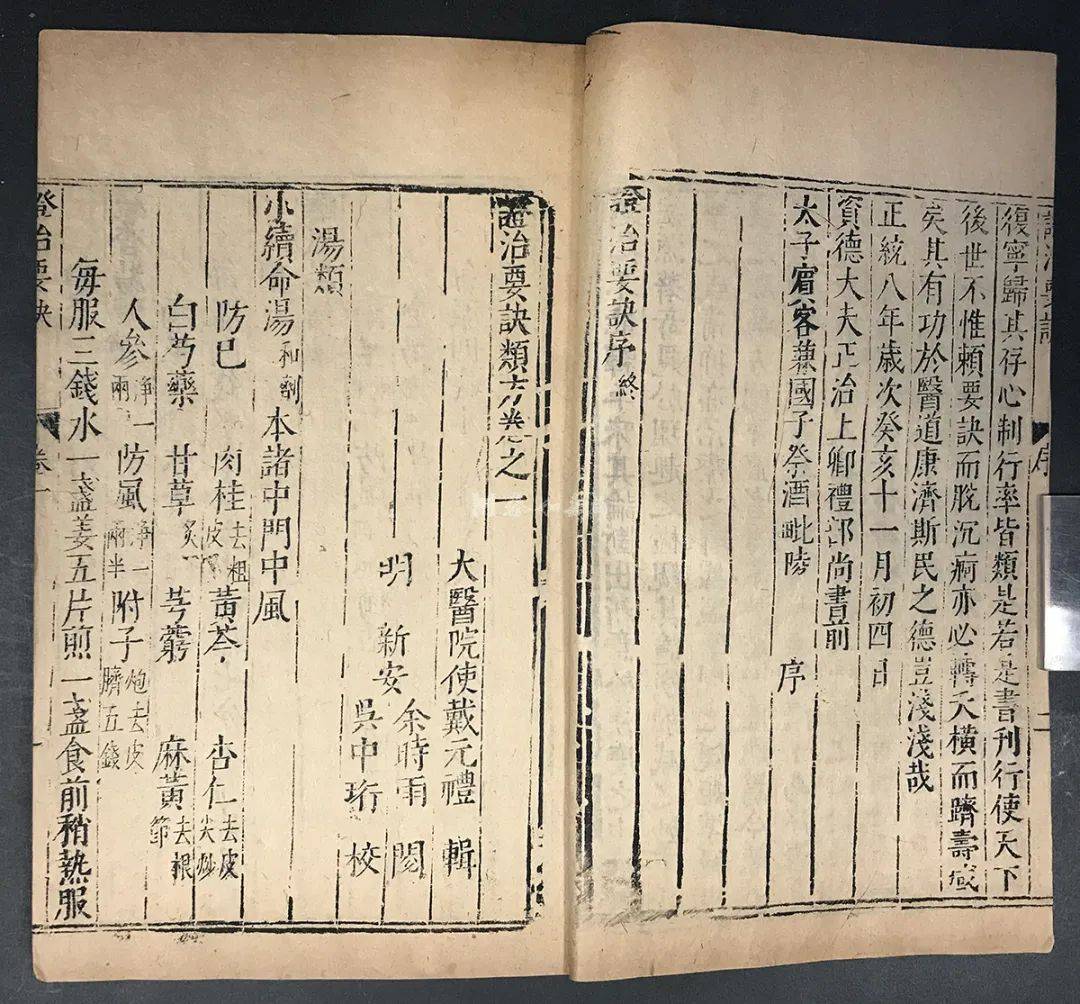 復寧歸其存心制行率皆類是若是書刊行使天下
後世不惟賴要訣而脫沉痾亦必轉夭橫而躋壽域
矣其有功於醫道康濟斯民之德豈淺淺哉
正統八年歲次癸亥十一月初四日
資德大夫正治上卿禮部尚書前
太子賓客兼國子祭酒毗陵 序
證治要訣序終
證治要訣類方卷之一
大醫院使戴元禮 輯
明 新安 余時雨 閱
吳中珩 校
湯類
小續命湯和劑本諸中門中風
防已 肉桂去粗皮 黃芩 杏仁去皮尖炒
白芍藥 甘草炙 芎藭 麻黃去根節
人參淨一兩 防風淨一兩半 附子炮去皮臍五錢
每服三錢水一盞姜五片煎一盞食前稍熱服
證治要訣 卷一